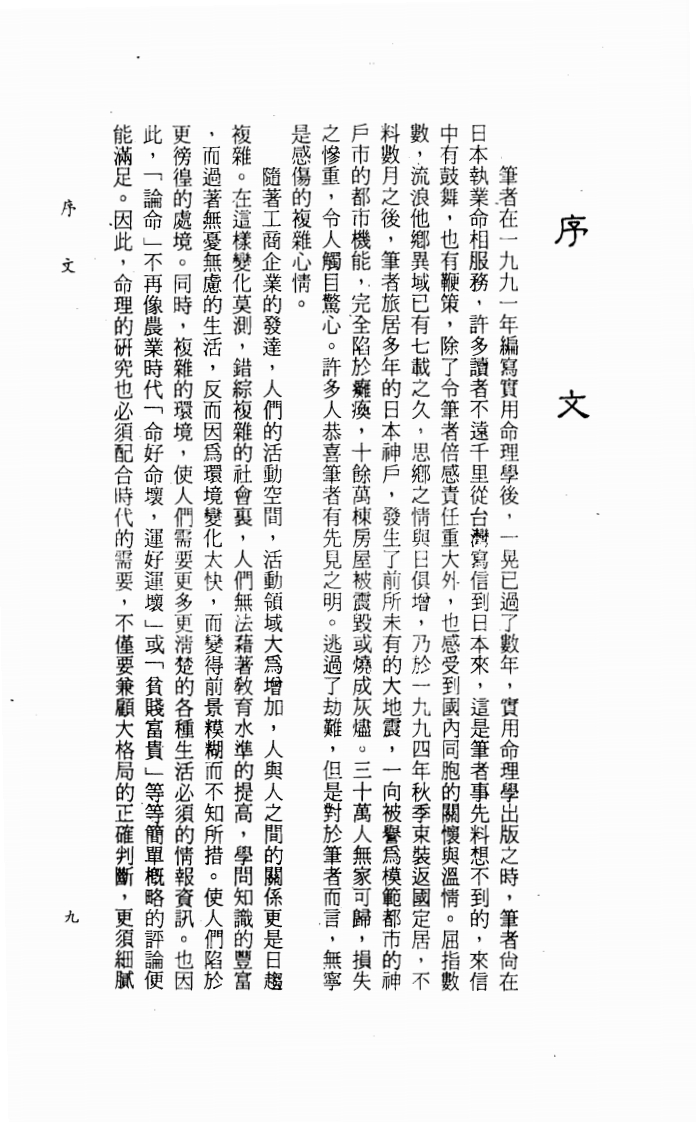 序文
筆者在一九九一年編寫實用命理學後，一晃已過了數年，實用命理學出版之時，筆者尙在
日本執業命相服務，許多讀者不遠千里從台灣寫信到日本來，這是筆者事先料想不到的，來信
中有鼓舞，也有鞭策，除了令筆者倍感責任重大外，也感受到國內同胞的關懷與溫情。屈指數
數，流浪他鄉異域已有七載之久，思鄉之情與日俱增，乃於一九九四年秋季束裝返國定居，不
料數月之後，筆者旅居多年的日本神戶，發生了前所未有的大地震，一向被譽爲模範都市的神
戶市的都市機能，完全陷於癱瘓，十餘萬棟房屋被震毀或燒成灰燼。三十萬人無家可歸，損失
之慘重，令人觸目驚心。許多人恭喜筆者有先見之明。逃過了劫難，但是對於筆者而言，無寧
是感傷的複雜心情。
隨著工商企業的發達，人們的活動空間，活動領域大爲增加，人與人之間的關係更是日趨
複雜。在這樣變化莫測，錯綜複雜的社會裏，人們無法藉著教育水準的提高，學問知識的豐富
，而過著無憂無慮的生活，反而因爲環境變化太快，而變得前景糢糊而不知所措。使人們陷於
更徬徨的處境。同時，複雜的環境，使人們需要更多更清楚的各種生活必須的情報資訊。也因
此，「論命」不再像農業時代「命好命壞，運好運壞」或「貧賤富貴」等等簡單概略的評論便
能滿足。因此，命理的研究也必須配合時代的需要，不僅要兼顧大格局的正確判斷，更須細膩
序文
九